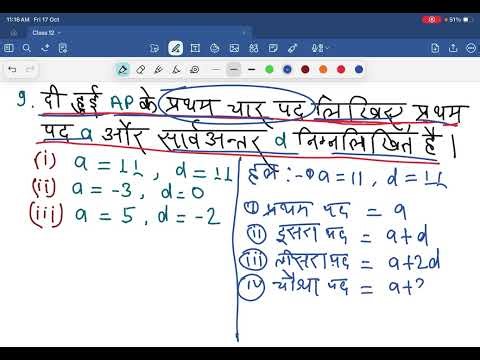 11:16 AM Fri 17 Oct
51%
Class 12
9. दी हुई AP के प्रथम चार पद लिखिए, प्रथम
पद a और सार्वअन्तर d निम्नलिखित है ।
(i) a = 11 , d = 11
(ii) a = -3, d = 0
(iii) a = 5, d = -2
हल :- a = 11 , d = 11
(i) प्रथम पद = a
(ii) दूसरा पद = a+d
(iii) तीसरा पद = a+2d
(iv) चौथा पद = a+3